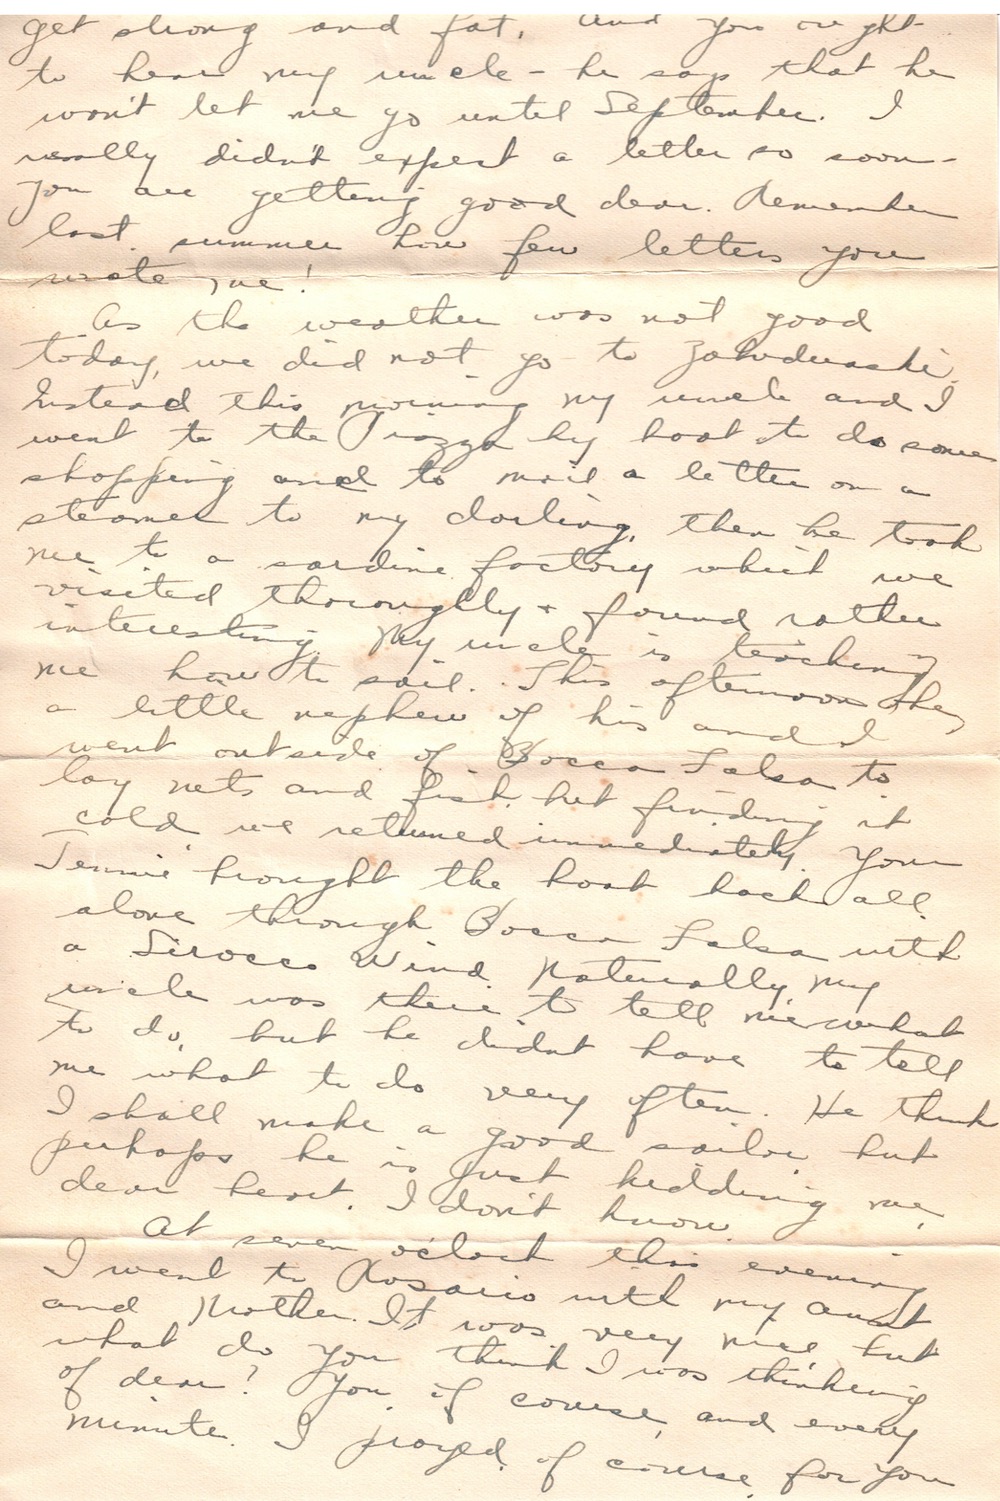 get strong and fat. And you ought
to hear my uncle - he says that he
won't let me go until September. I
really didn't expect a letter so soon -
you are getting good dear. Remember
last summer how few letters you
wrote me!
As the weather was not good
today, we did not go to
Instead this morning my uncle and I
went to the Piazza by boat to do some
shopping and to mail a letter on a
steamer to my darling, then he took
me to a sardine factory which we
visited thoroughly + found rather
interesting. My uncle is teaching
me how to sail. This afternoon he,
a little nephew of his and I
went outside of Bocca Falsa to
lay nets and fish, but finding it
cold we returned immediately. Your
Jennie brought the boat back all
alone through Bocca Falsa with
a Sirocco Wind. Naturally my
uncle was there to tell me what
to do, but he didnt have to tell
me what to do very often. He thinks
I shall make a good sailor but
perhaps he is just kidding me,
dear heart. I don't know.
At seven o'clock this evening
I went to Rosario with my aunt
and Mother. It was very nice, but
what do you think I was thinking
of dear? You, of course, and every
minute. I prayed, of course, for you